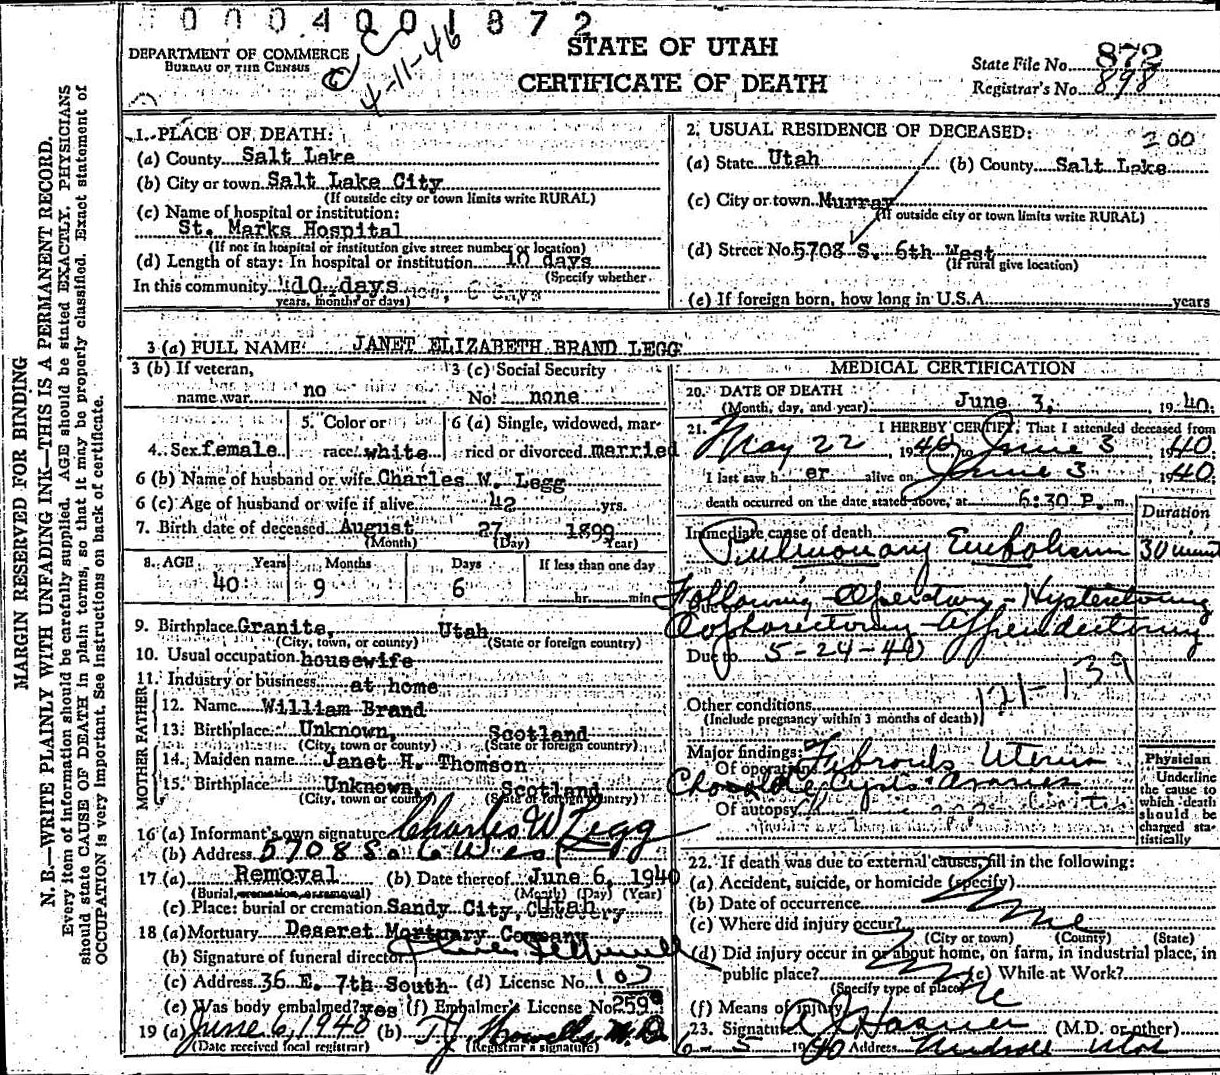 0004001872
4-11-46
DEPARTMENT OF COMMERCE
BUREAU OF THE CENSUS
STATE OF UTAH
CERTIFICATE OF DEATH
State File No. 872
Registrar's No. 898
MARGIN RESERVED FOR BINDING
N. B.—WRITE PLAINLY WITH UNFADING INK—THIS IS A PERMANENT RECORD.
Every item of information should be carefully supplied. AGE should be stated EXACTLY. PHYSICIANS
should state CAUSE OF DEATH in plain terms, so that it may be properly classified. Exact statement of
OCCUPATION is very important. See instructions on back of certificate.
1. PLACE OF DEATH:
(a) County Salt Lake
(b) City or town Salt Lake City
(If outside city or town limits write RURAL)
(c) Name of hospital or institution:
St. Marks Hospital
(If not in hospital or institution give street number or location)
(d) Length of stay: In hospital or institution 10 days
(Specify whether
In this community 10 days
years, months or days)
2. USUAL RESIDENCE OF DECEASED:
200
(a) State Utah (b) County Salt Lake
(c) City or town Murray
(If outside city or town limits write RURAL)
(d) Street No. 5708 S. 6th West
(If rural give location)
(e) If foreign born, how long in U.S.A. years
3 (a) FULL NAME: JANET ELIZABETH BRAND LEGG
3 (b) If veteran,
name war no
3 (c) Social Security
No. none
4. Sex female
5. Color or
race white
6 (a) Single, widowed, mar-
ried or divorced married
6 (b) Name of husband or wife Charles W. Legg
6 (c) Age of husband or wife if alive 42 yrs.
7. Birth date of deceased August 27, 1899
(Month) (Day) (Year)
8. AGE Years Months Days If less than one day
40 9 6 hr. min.
9. Birthplace Granite, Utah
(City, town, or county) (State or foreign country)
10. Usual occupation housewife
11. Industry or business at home
FATHER
12. Name William Brand
13. Birthplace Unknown, Scotland
(City, town or county) (State or foreign country)
MOTHER
14. Maiden name Janet H. Thomson
15. Birthplace Unknown, Scotland
(City, town or county) (State or foreign country)
16 (a) Informant's own signature Charles W Legg
(b) Address 5708 So. 6 West
17 (a) Removal (b) Date thereof June 6, 1940
(Burial, cremation, or removal) (Month) (Day) (Year)
(c) Place: burial or cremation Sandy City, Utah
18 (a) Mortuary Deseret Mortuary Company
(b) Signature of funeral director
(c) Address 36 E. 7th South (d) License No. 107
(e) Was body embalmed? yes (f) Embalmer's License No. 259
19 (a) June 6, 1940 (b) T. J. Howells M.D.
(Date received local registrar) (Registrar's signature)
MEDICAL CERTIFICATION
20. DATE OF DEATH
(Month, day, and year) June 3, 1940.
21. I HEREBY CERTIFY, That I attended deceased from
May 22, 1940, to June 3 1940.
I last saw her alive on June 3 1940
death occurred on the date stated above, at 6:30 P. m.
Duration
Immediate cause of death
Pulmonary Embolism 30 minut
Due to Following Operation - Hysterectomy
Oophorectomy - Appendectomy
Due to 5-24-40
121-139
Other conditions
(Include pregnancy within 3 months of death)
Major findings:
Of operation Fibroids Uterus
Chocolate Cysts Ovaries
Of autopsy
Physician
Underline
the cause to
which death
should be
charged sta-
tistically
22. If death was due to external causes, fill in the following:
(a) Accident, suicide, or homicide (specify)
(b) Date of occurrence
None
(c) Where did injury occur?
(City or town) (County) (State)
(d) Did injury occur in or about home, on farm, in industrial place, in
public place? (e) While at Work?
(Specify type of place)
(f) Means of injury
23. Signature (M.D. or other)
6-5 1940 Address Midvale Utah